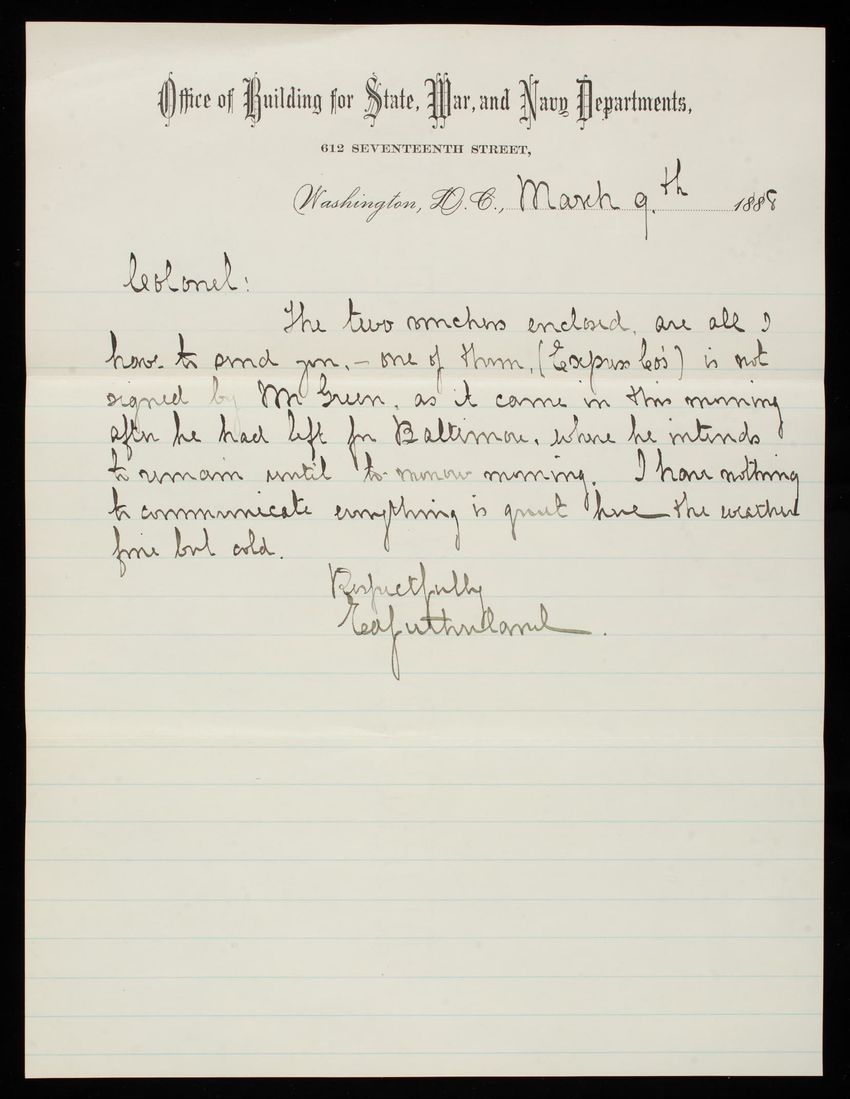 Office of Building for State, War, and Navy Departments,
612 SEVENTEENTH STREET,
Washington, D.C., March 9.th 1888
Colonel:
The two vouchers enclosed, are all I
have to send you, – one of them, (Express Co's) is not
signed by Mr Green, as it came in this morning
after he had left for Baltimore, where he intends
to remain until to-morrow morning. I have nothing
to communicate everything is quiet here – the weather
fine but cold.
Respectfully
Sutherland.